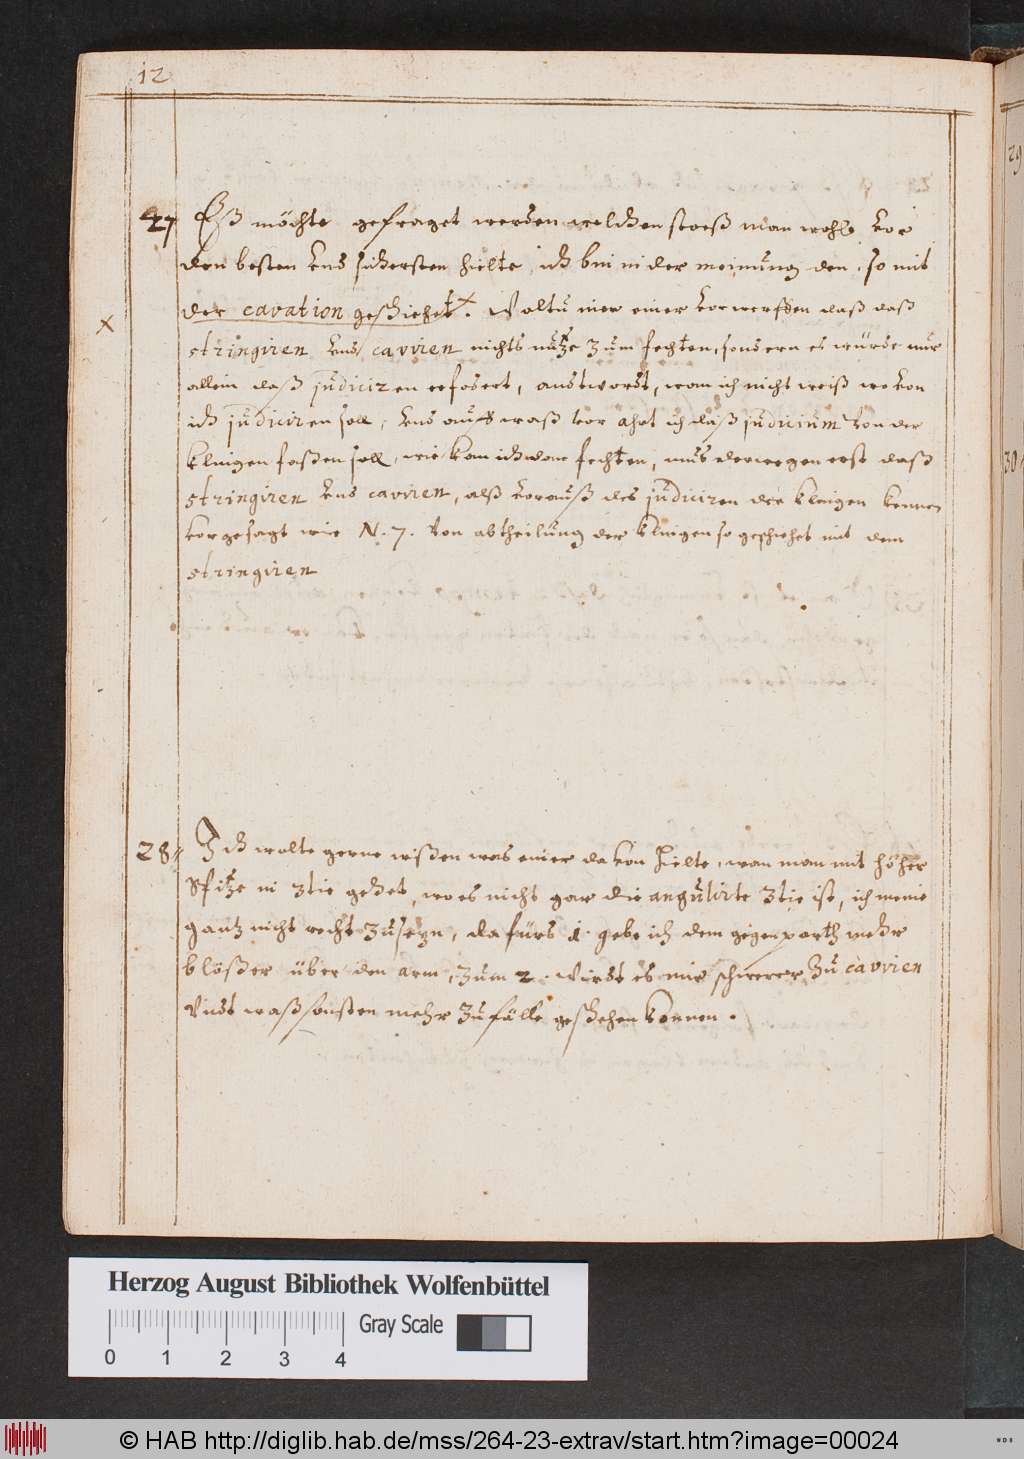 12
27 Eß möchte gefraget werden welchen stoeß man wohl vor
den besten vnd sichersten hielte, ich bin in der meinung den, so mit
der cavation geschiehet x. Woltu mier einer vorwerffen daß daß
x
stringiren vnd caviren nichts nutze zum fechten, sondern es würde nur
allein daß judiciren erfodert, andtwordt, wan ich nicht weiß wovon
ich judiciren soll, vnd auff waß vor ahrt ich daß judicium von der
klingen faßen soll, wie kan ich dan fechten, mus derwegen erst daß
stringiren vnd caviren, alß vorauß des judiciren der klingen kennen
vorgesagt wie N. 7. Von abtheilung der klingen so geschiehet mit dem
stringiren
28 Ich wolte gerne wißen was einer davon hielte, wan man mit höher
Spitze in 3tie gehet, wo es nicht gar die angulirte 3tie ist, ich meine
gantz nicht recht zu seyn, dafürs 1. gebe ich dem gegenparth mehr
blößer über den arm, zum 2. wirdt es mir schwerer zu caviren
Vndt waß sonsten mehr zufälle geschehen können.
29
30
Herzog August Bibliothek Wolfenbüttel
0 1 2 3 4
Gray Scale
© HAB http://diglib.hab.de/mss/264-23-extrav/start.htm?image=00024